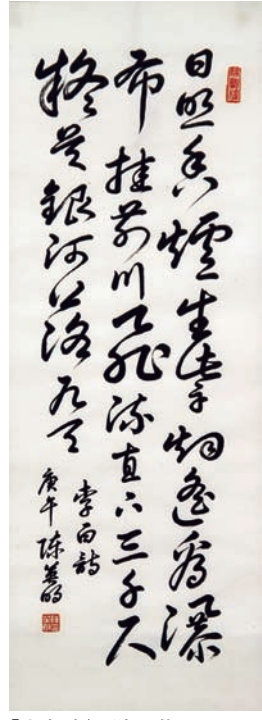 日照香爐生紫烟遙看瀑
布挂前川飛流直下三千尺
疑是銀河落九天
李白詩
庚午 陳